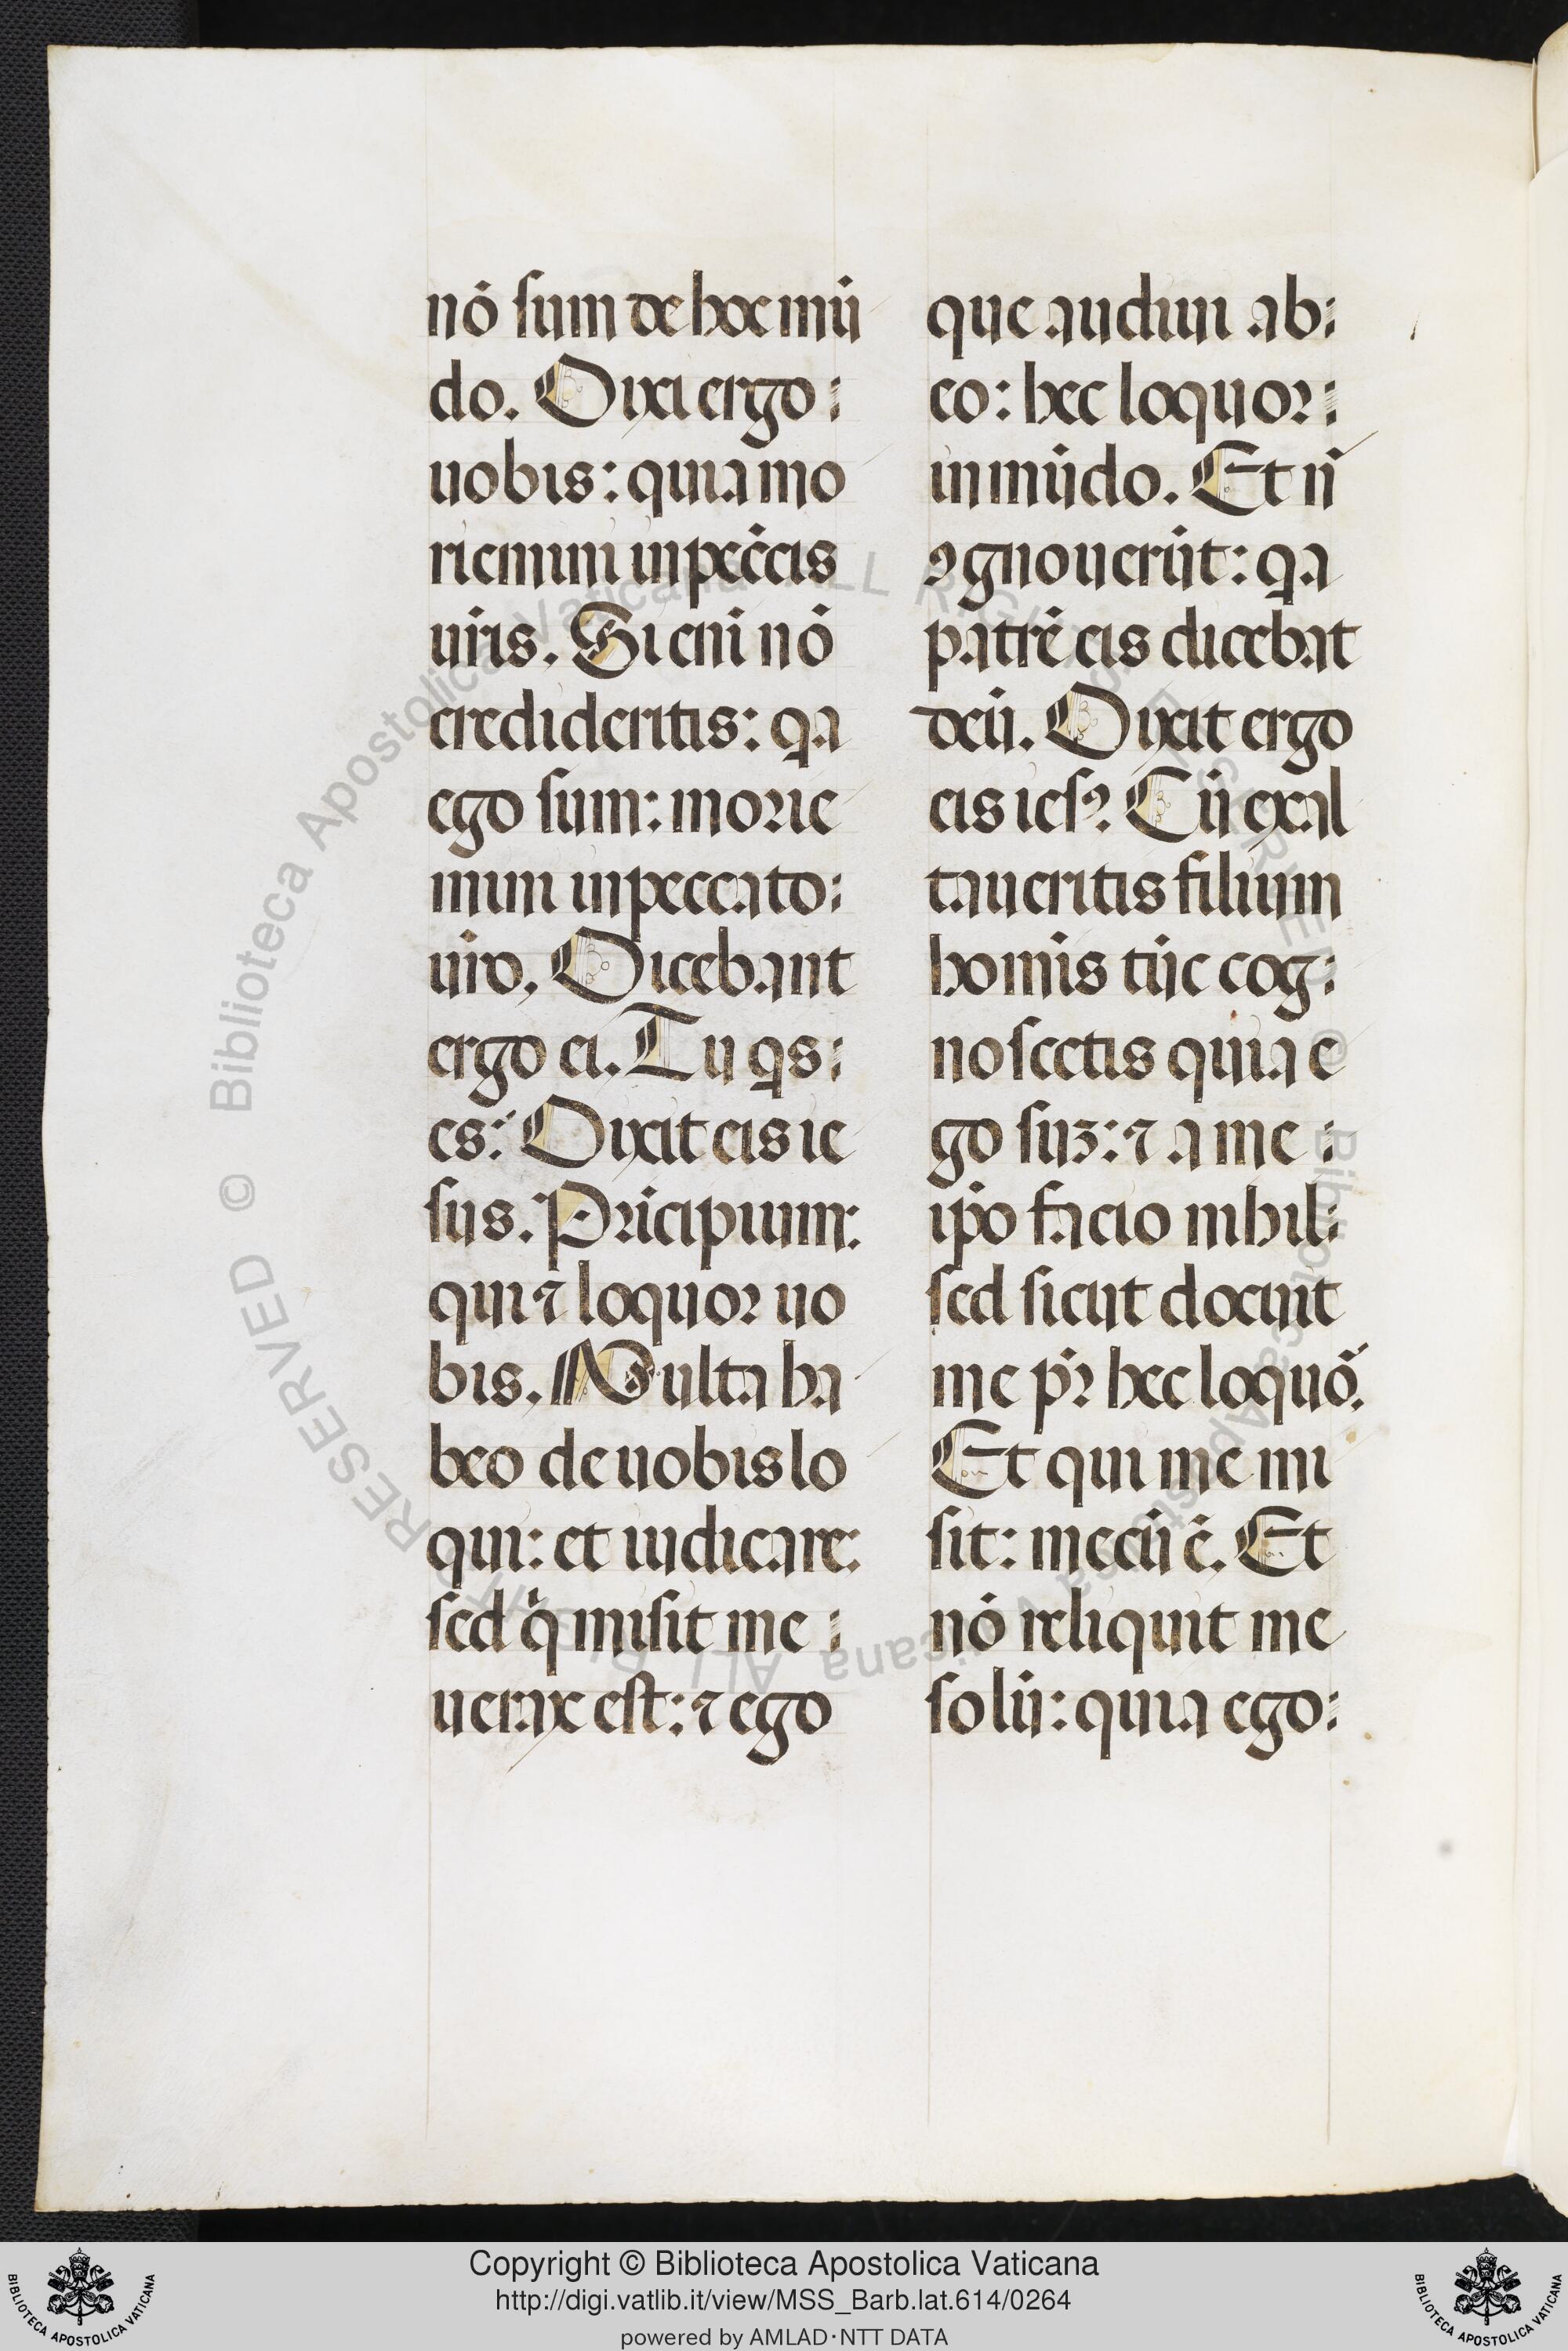 nō sum de hoc mū
do. Dixi ergo :
uobis : quia mo
riemini in pec̄cis
ur̄is. Si eni nō
credideritis : qa
ego sum : morie
mini in peccato :
ur̄o. Dicebant
ergo ei. Tu qs :
es : Dixit eis ie
sus. Pricipium :
qui ⁊ loquor uo
bis. Multa ha
beo de uobis lo
qui : et iudicare :
sed q̇ misit me :
uerax est : ⁊ ego
que audiui ab :
eo : hec loquor :
in mūdo. Et n̄
ꝯgnouerūt : qa
patrē eis dicebat
deū. Dixit ergo
eis iesꝯ. Cū exal
taueritis filium
homīs tūc cog :
noscetis quia e
go suꝫ : ⁊ a me :
ip̄o facio nihil :
sed sicut docuit
me pr̄ hec loquō.
Et qui me mi
sit : mecū ē. Et
nō reliquit me
solū : quia ego :
Copyright © Biblioteca Apostolica Vaticana
http://digi.vatlib.it/view/MSS_Barb.lat.614/0264
powered by AMLAD·NTT DATA
BIBLIOTECA APOSTOLICA VATICANA
BIBLIOTECA APOSTOLICA VATICANA
© Biblioteca Apostolica Vaticana ALL RIGHTS RESERVED